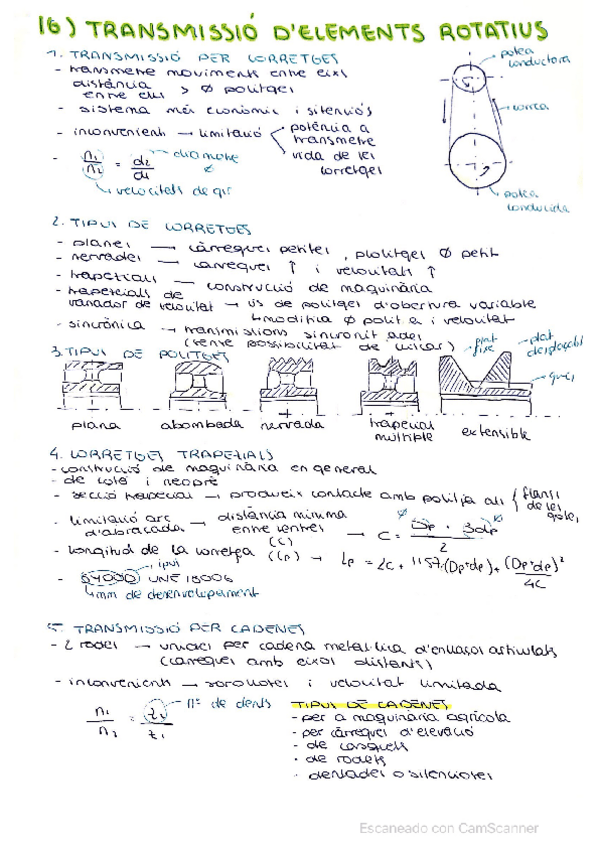 16) TRANSMISSIÓ D'ELEMENTS ROTATIUS
1. TRANSMISSIÓ PER CORRETGES
- transmetre moviments entre eixos
distància entre ells > Ø politges
- sistema més econòmic i silenciós
- inconvenients → limitació
potència a transmetre
vida de les corretges
- n1/n2 = d2/d1
diàmetre Ø
velocitats de gir
politja conductora
corretja
politja conduida
2. TIPUS DE CORRETGES
- planes → càrregues petites, politges Ø petit
- nervades → càrregues ↑ i velocitats ↑
- trapecials → construcció de maquinària
- trapecials de variador de velocitat → ús de politges d'obertura variable
↳ modifica Ø polit e i velocitat
- sincrònica → transmissions sincronitzades
(sense possibilitat de lliscar)
3. TIPUS DE POLITGES
plat fixe
plat desplaçable
plana
abombada
nervada
trapecial múltiple
extensible
4. CORRETGES TRAPECIALS
- construcció de maquinària en general
- de cotó i neoprè
- secció trapecial → produeix contacte amb politja als
flancs de les goles
- limitació arc d'abraçada → distància mínima entre centres (C) → C =
2
- longitud de la corretja (Lp) → Lp = 2C + 1'57·(Dp+dp) + (Dp-dp)²/4C
- UNE 18006
↳ mm de desenvolupament
5. TRANSMISSIÓ PER CADENES
- 2 rodes → unides per cadena metàl·lica d'enllaços articulats
(càrregues amb eixos distants)
- inconvenients → sorolloses i velocitat limitada
n1/n2 = z2/z1
nº de dents
TIPUS DE CADENES
- per a maquinària agrícola
- per càrregues d'elevació
- de casquets
- de rodets
- dentades o silencioses
Escaneado con CamScanner